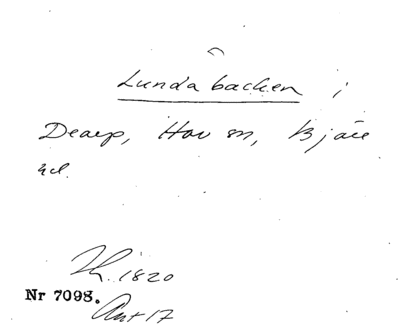 Lundabacken i
Dearp, Hov sn, Bjäre
hd.
Th. 1820
Nr 7098.
Ant 17